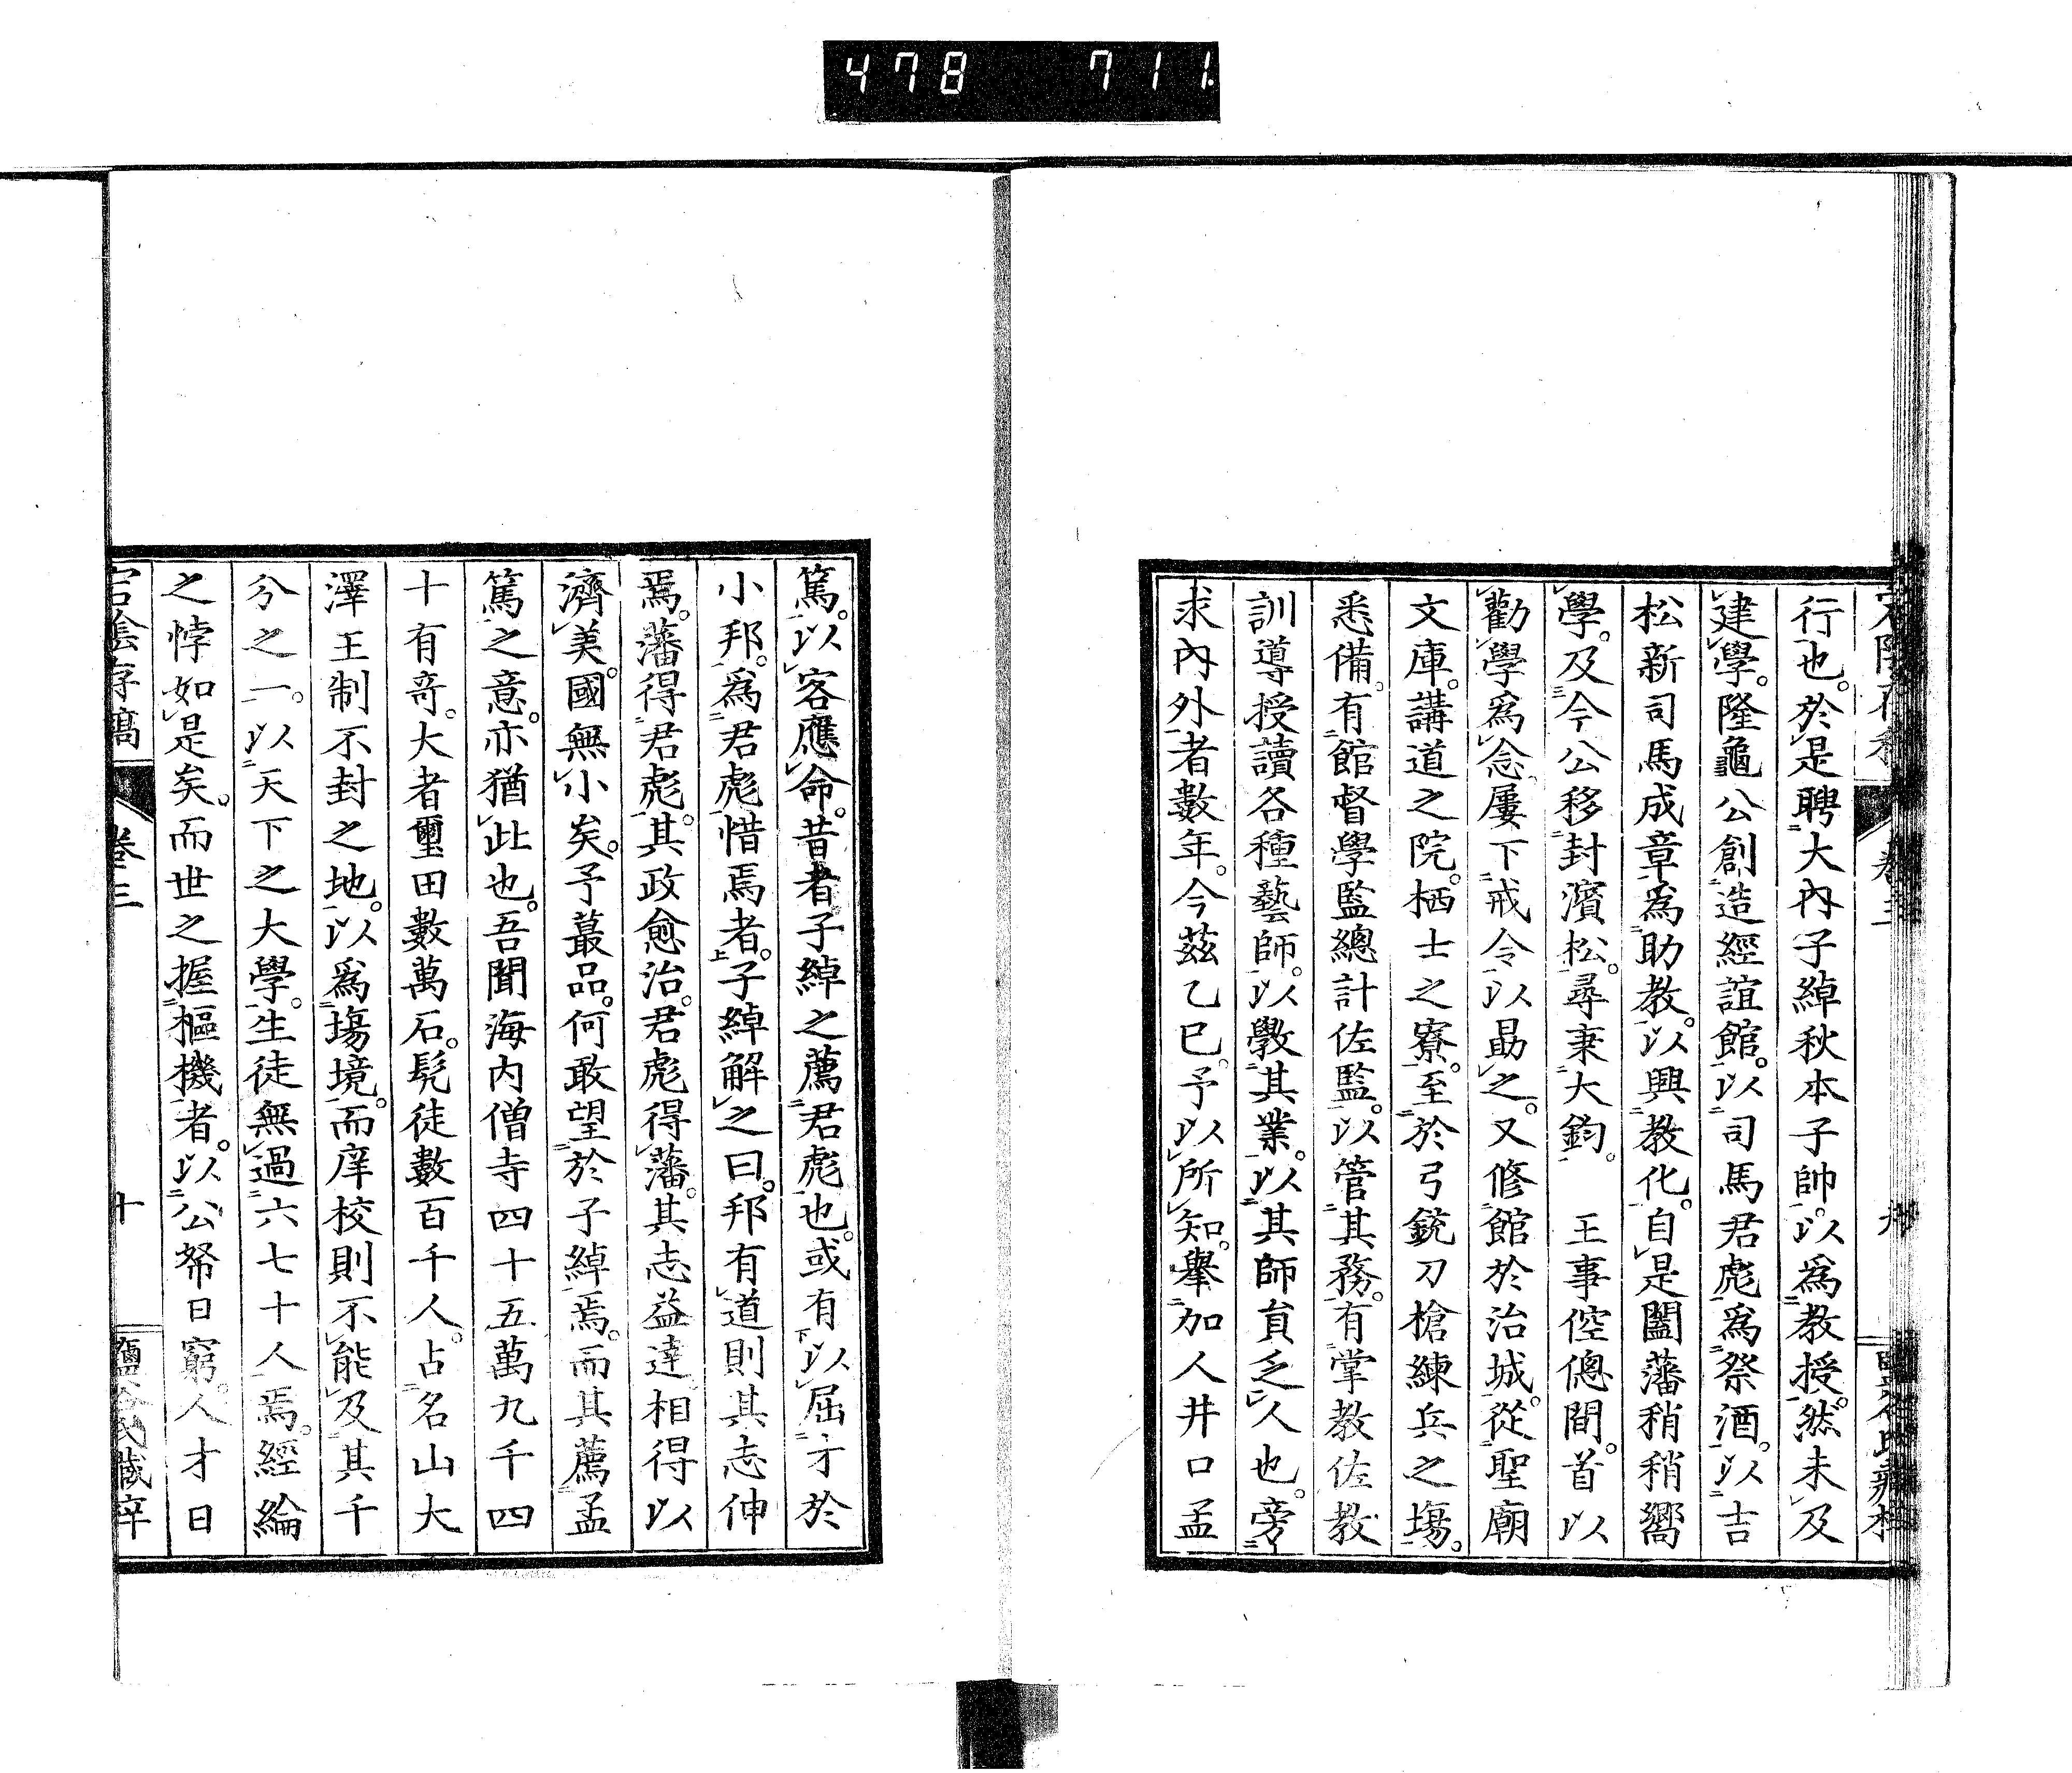 478 711
行也。於是聘大內子綽秋本子帥。以爲教授。然未及
建學。隆龜公創造經誼館。以司馬君彪爲祭酒。以吉
松新司馬成章為助教。以興教化。自是闔藩稍稍嚮
學。及今公移封濱松。尋秉大鈞。 王事倥傯間。首以
勸學爲念。屢下戒令以勗之。又修館於治城。從聖廟
文庫。講道之院。栖士之寮。至於弓銃刀槍練兵之塲。
悉備。有館督學監總計佐監。以管其務。有掌教佐教
訓導授讀各種藝師。以斅其業。以其師員乏人也。旁
求內外者數年。今茲乙巳。予以所知。舉加人井口孟
篤。以客應命。昔者子綽之薦君彪也。或有以屈才於
小邦。爲君彪惜焉者。子綽解之曰。邦有道則其志伸
焉。藩得君彪。其政愈治。君彪得藩。其志益達。相得以
濟美。國無小矣。予蕞品。何敢望於子綽焉。而其薦孟
篤之意。亦猶此也。吾聞海内僧寺四十五萬九千四
十有奇。大者壐田數萬石。髡徒數百千人。占名山大
澤王制不封之地。以爲塲境。而庠校則不能及其千
分之一。以天下之大學。生徒無過六七十人焉。經綸
之悖如是矣。而世之握樞機者。以公帑日窮。人才日
卷三
十